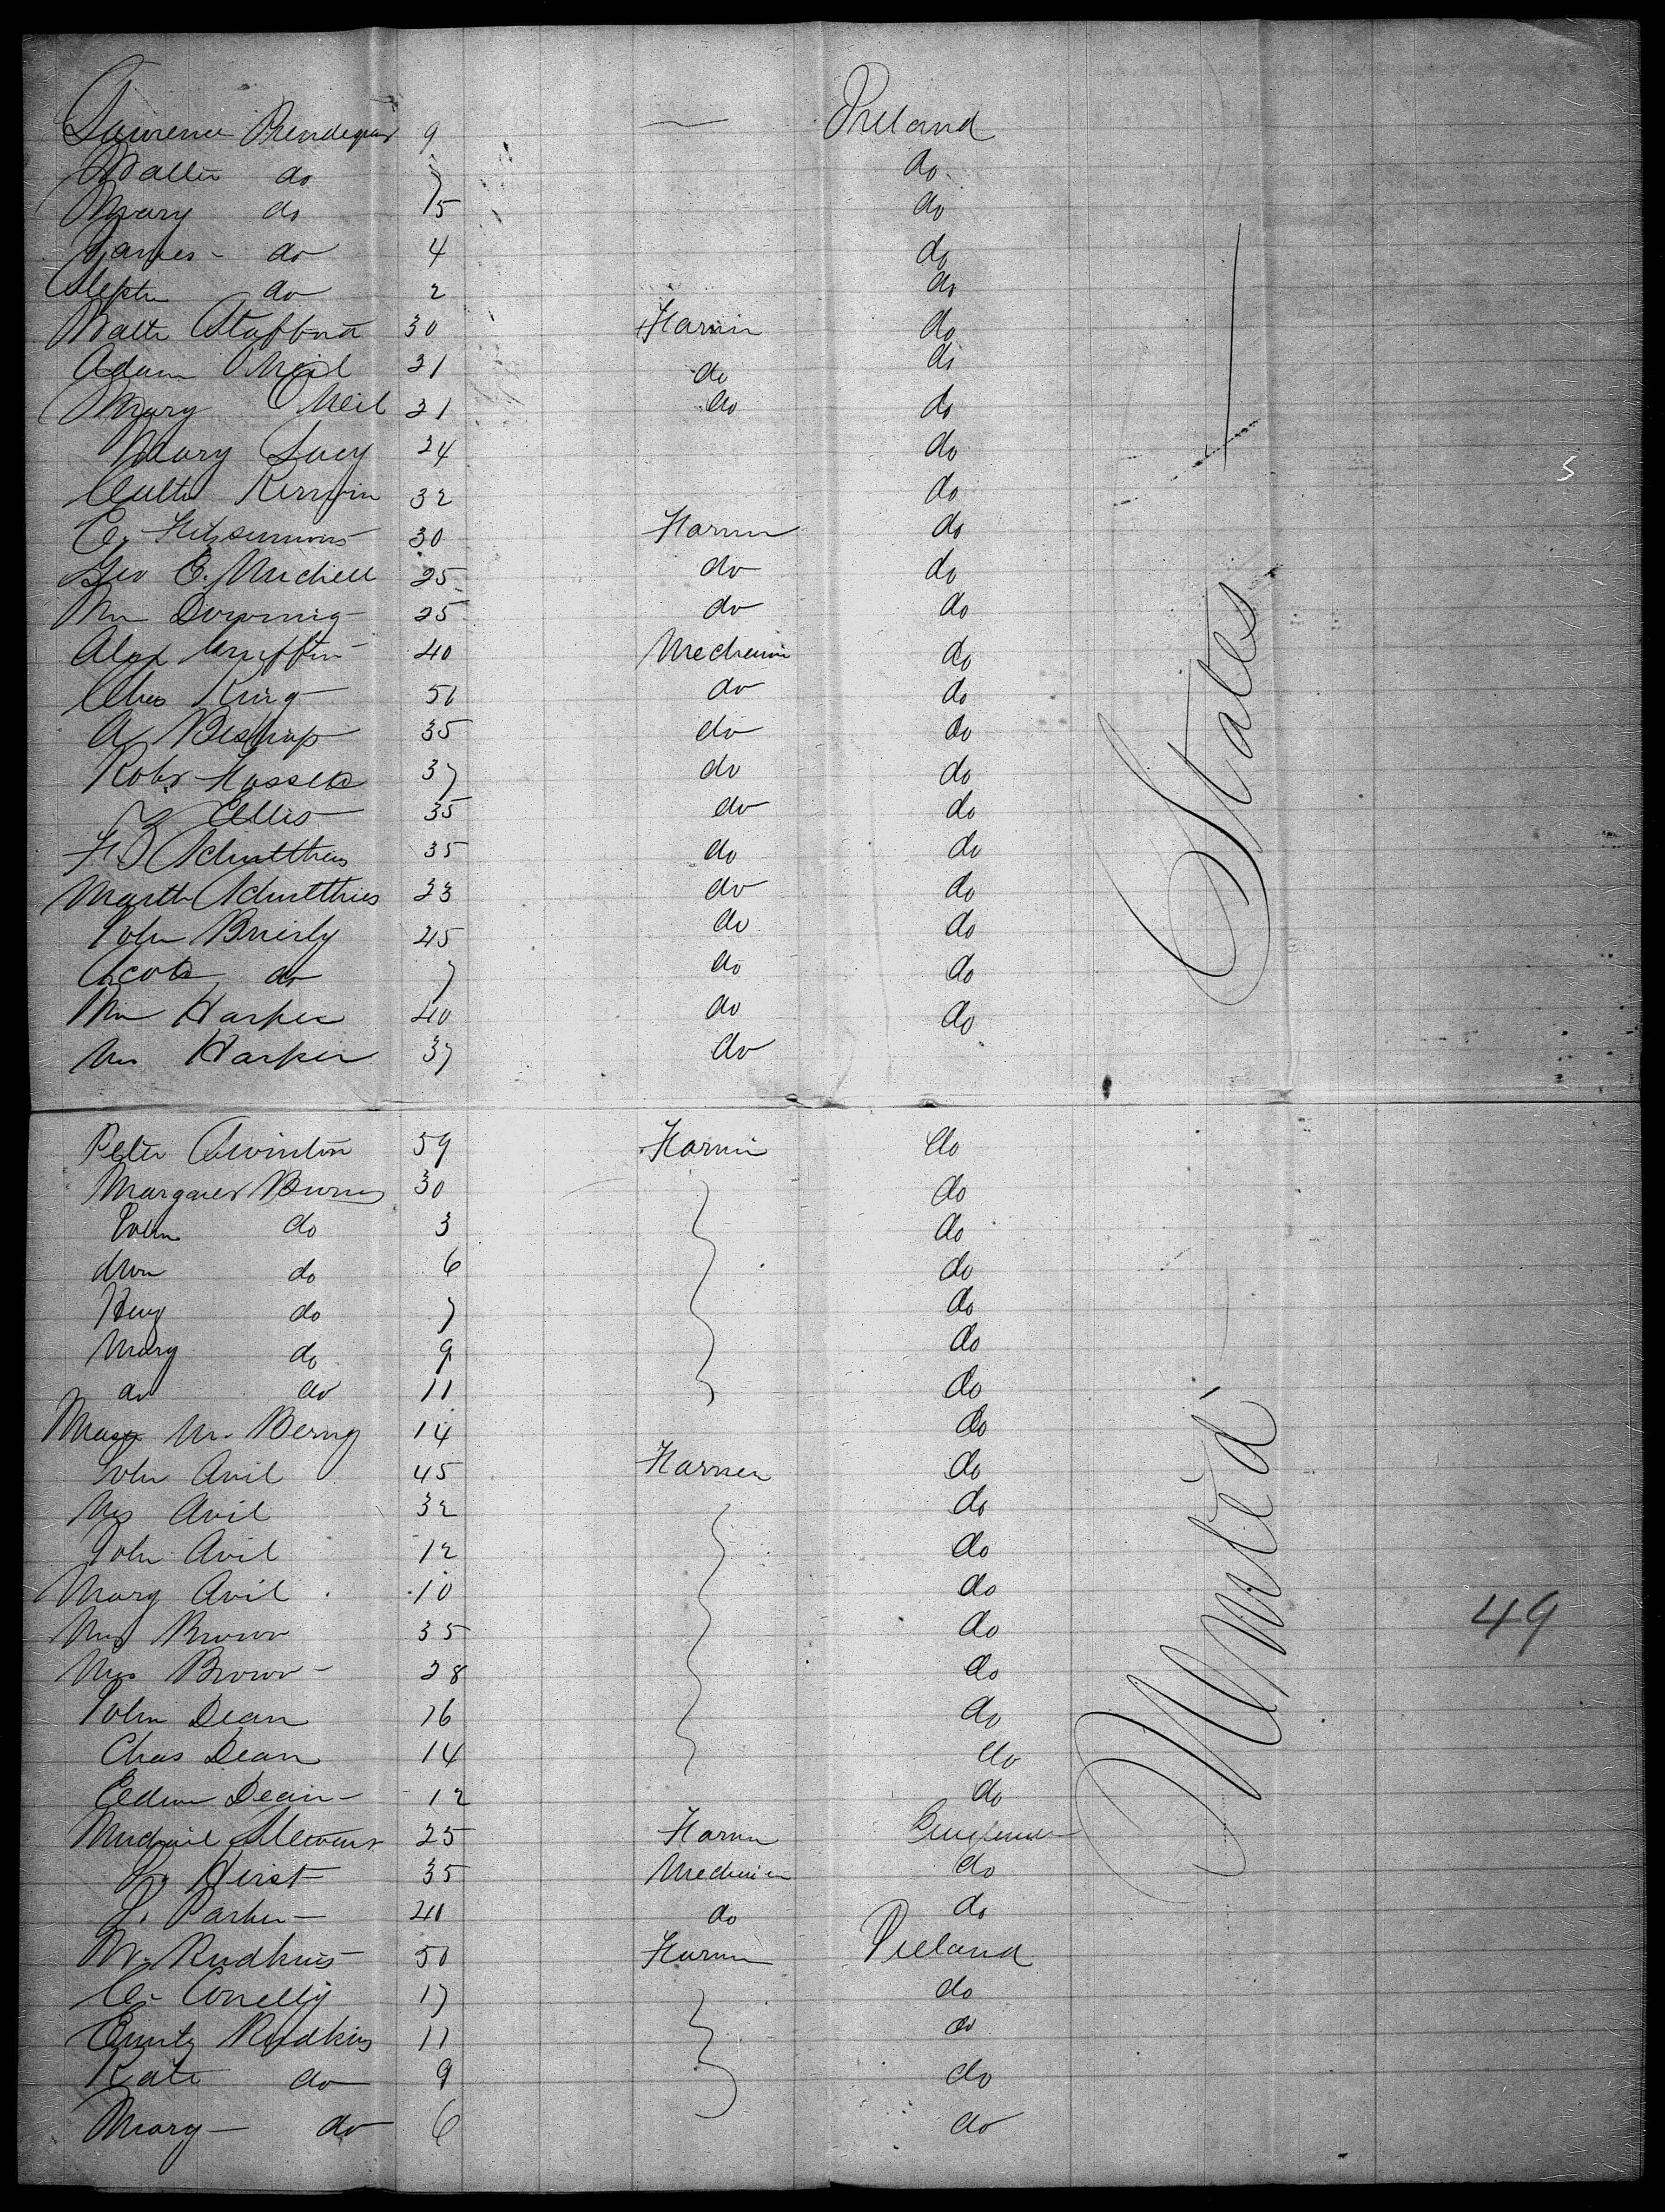 Lawrence Prendegras 9 — Ireland
Walter do 7 do
Mary do 5 do
James - do 4 do
Stephn do 2 do
Walter Stafford 30 Farmer do
Adam ONeil 21 do do
Mary ONeil 21 do do
Mary Lacy 24 do
Kerwin 32 do
C. Fitzsimmons 30 Farmer do
Geo C. Michell 25 do do
Wm Downing 25 do do
Alex Griffin 40 Mechanic do
Chas King 50 do do
A Bishop 35 do do
Robt 37 do do
Ellis 35 do do
F. Schultheis 35 do do
Martha Schultheis 23 do do
John Brierly 45 do do
do 7 do do
Wm Harper 40 do do
Mrs Harper 37 do
Peter Swinton 59 Farmer do
Margaret Burns 30 do
do 3 do
Ann do 6 do
do 7 do
Mary do 9 do
do do 11 do
M. 14 do
John Avil 45 Farmer do
Mrs Avil 32 do
John Avil 12 do
Mary Avil 10 do
Brown 35 do
Mrs Brown - 28 do
John Dean 16 do
Chas Dean 14 do
Edwin Dean - 12 do
Michael Stewart 25 Farmer England
L. Hirst 35 Mechanic do
J. Parker - 40 do do
W. Rudkins 50 Farmer Ireland
C. Conelly 17 do
Rudkins 11 do
Kate do 9 do
Mary - do 6 do
United States
49
5